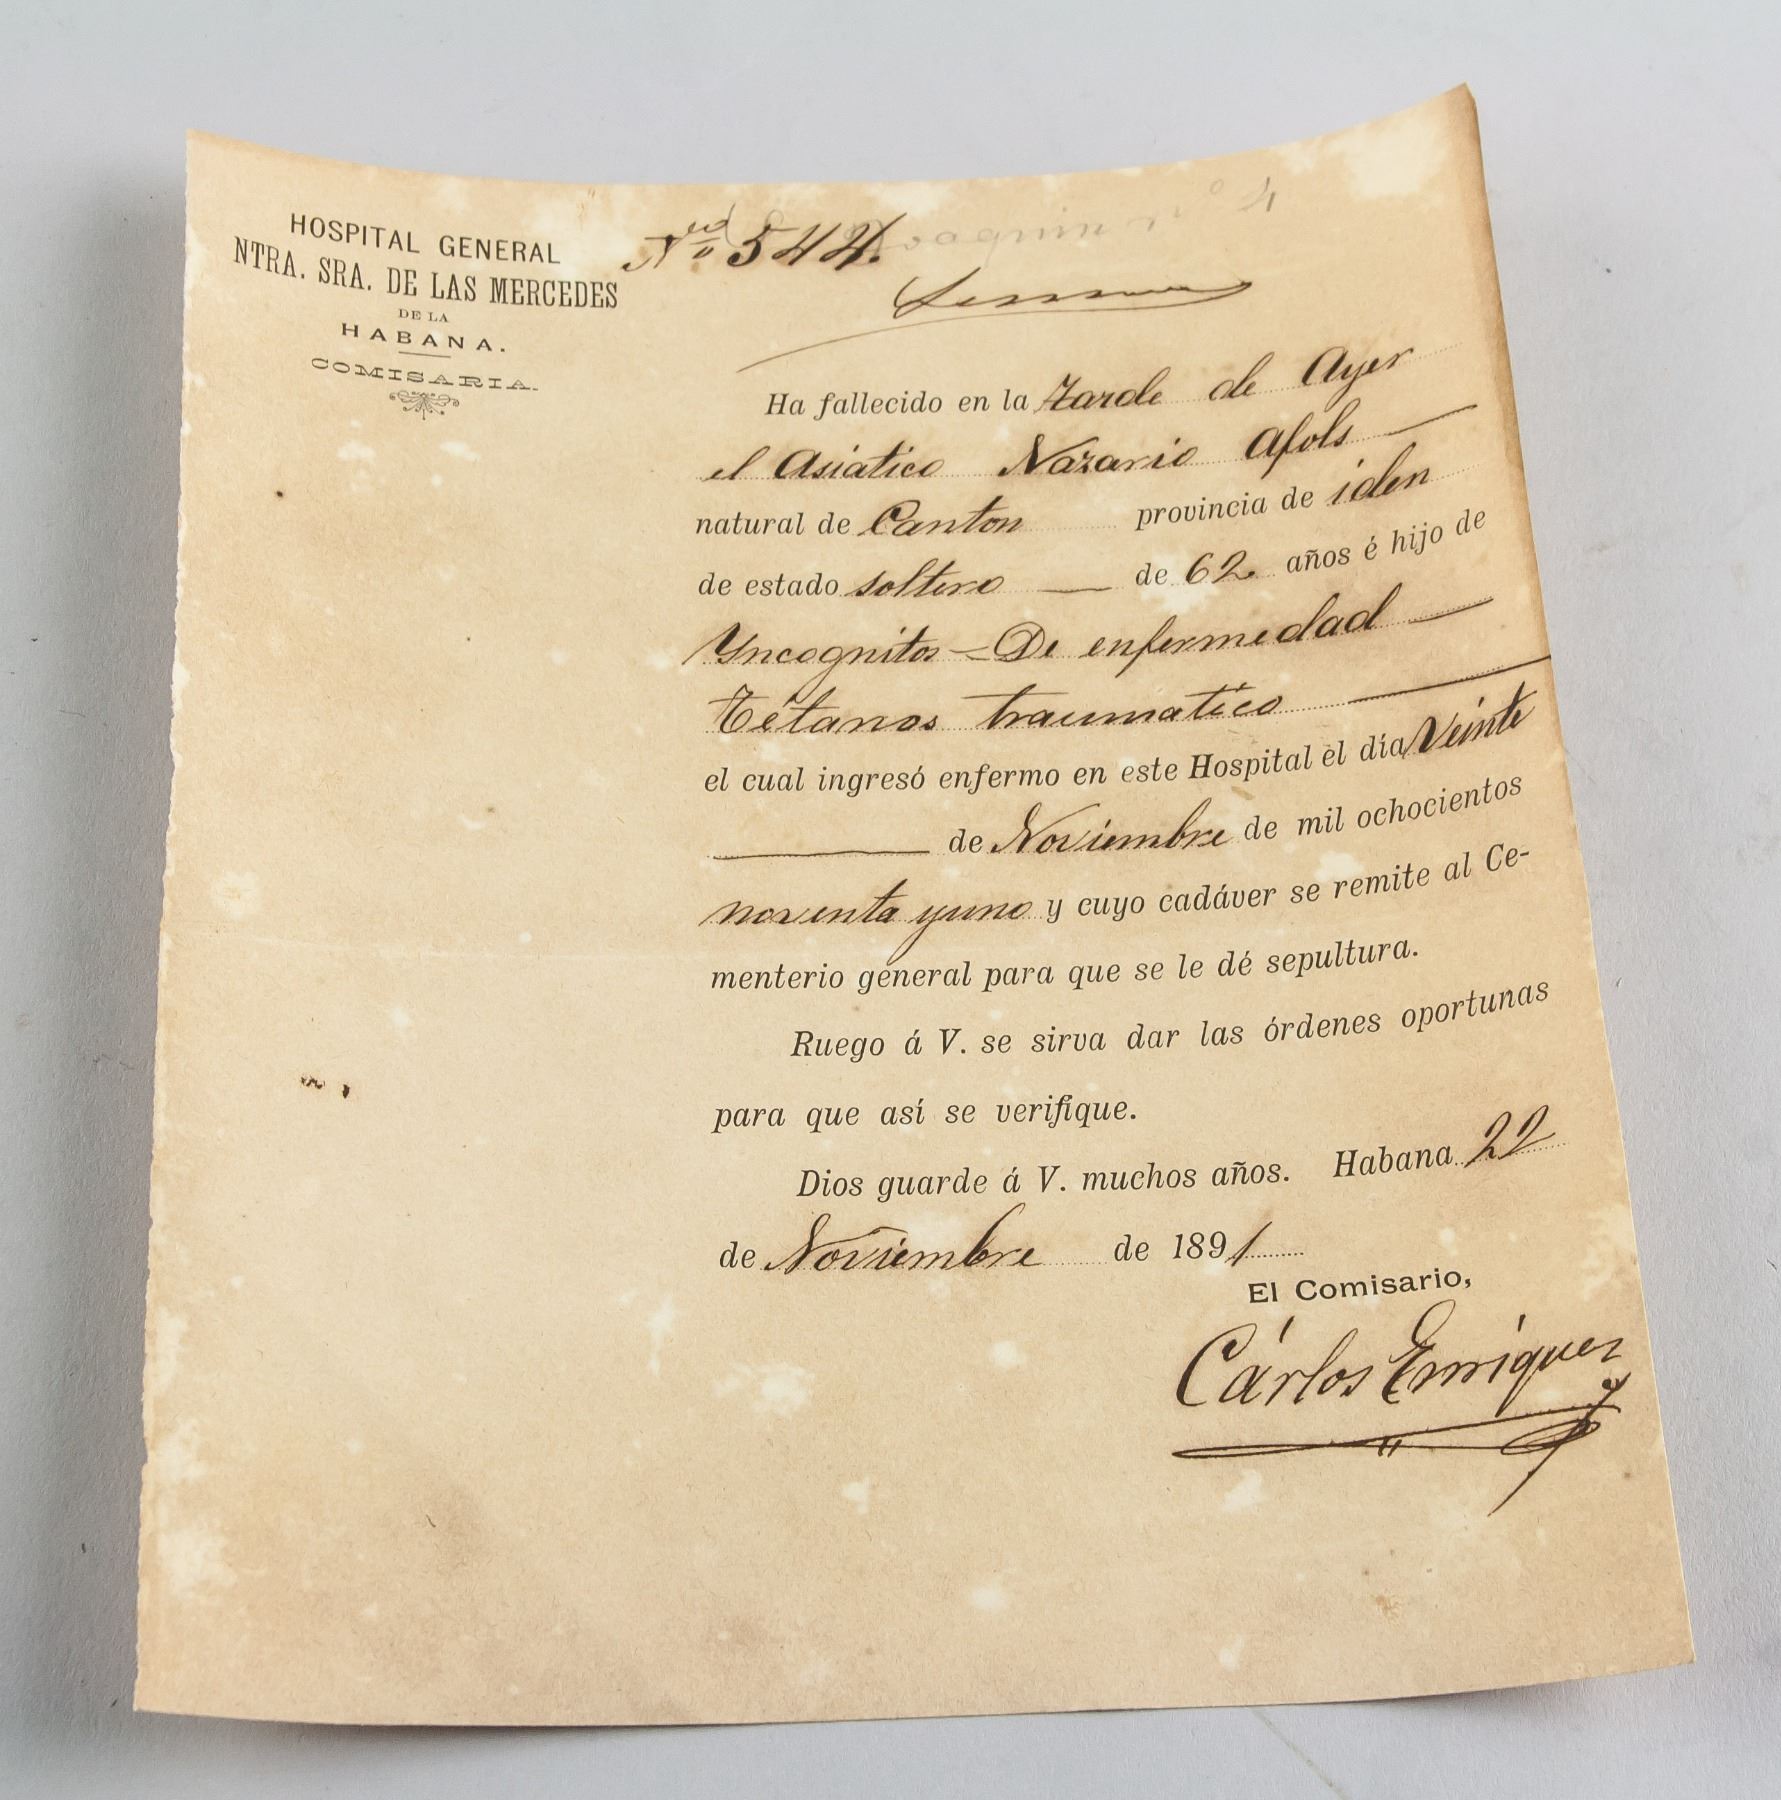 HOSPITAL GENERAL
NTRA. SRA. DE LAS MERCEDES
DE LA
HABANA.
COMISARIA.
Nº 544.
Ha fallecido en la Tarde de Ayer
el Asiático Nazario Afols
natural de Canton provincia de iden
de estado soltero — de 62 años é hijo de
Yncognitos = De enfermedad —
Tétanos traumatico —
el cual ingresó enfermo en este Hospital el día Veinte
— de Noviembre de mil ochocientos
noventa yuno y cuyo cadáver se remite al Ce-
menterio general para que se le dé sepultura.
Ruego á V. se sirva dar las órdenes oportunas
para que así se verifique.
Dios guarde á V. muchos años. Habana 22
de Noviembre de 1891
El Comisario,
Cárlos Enríquez